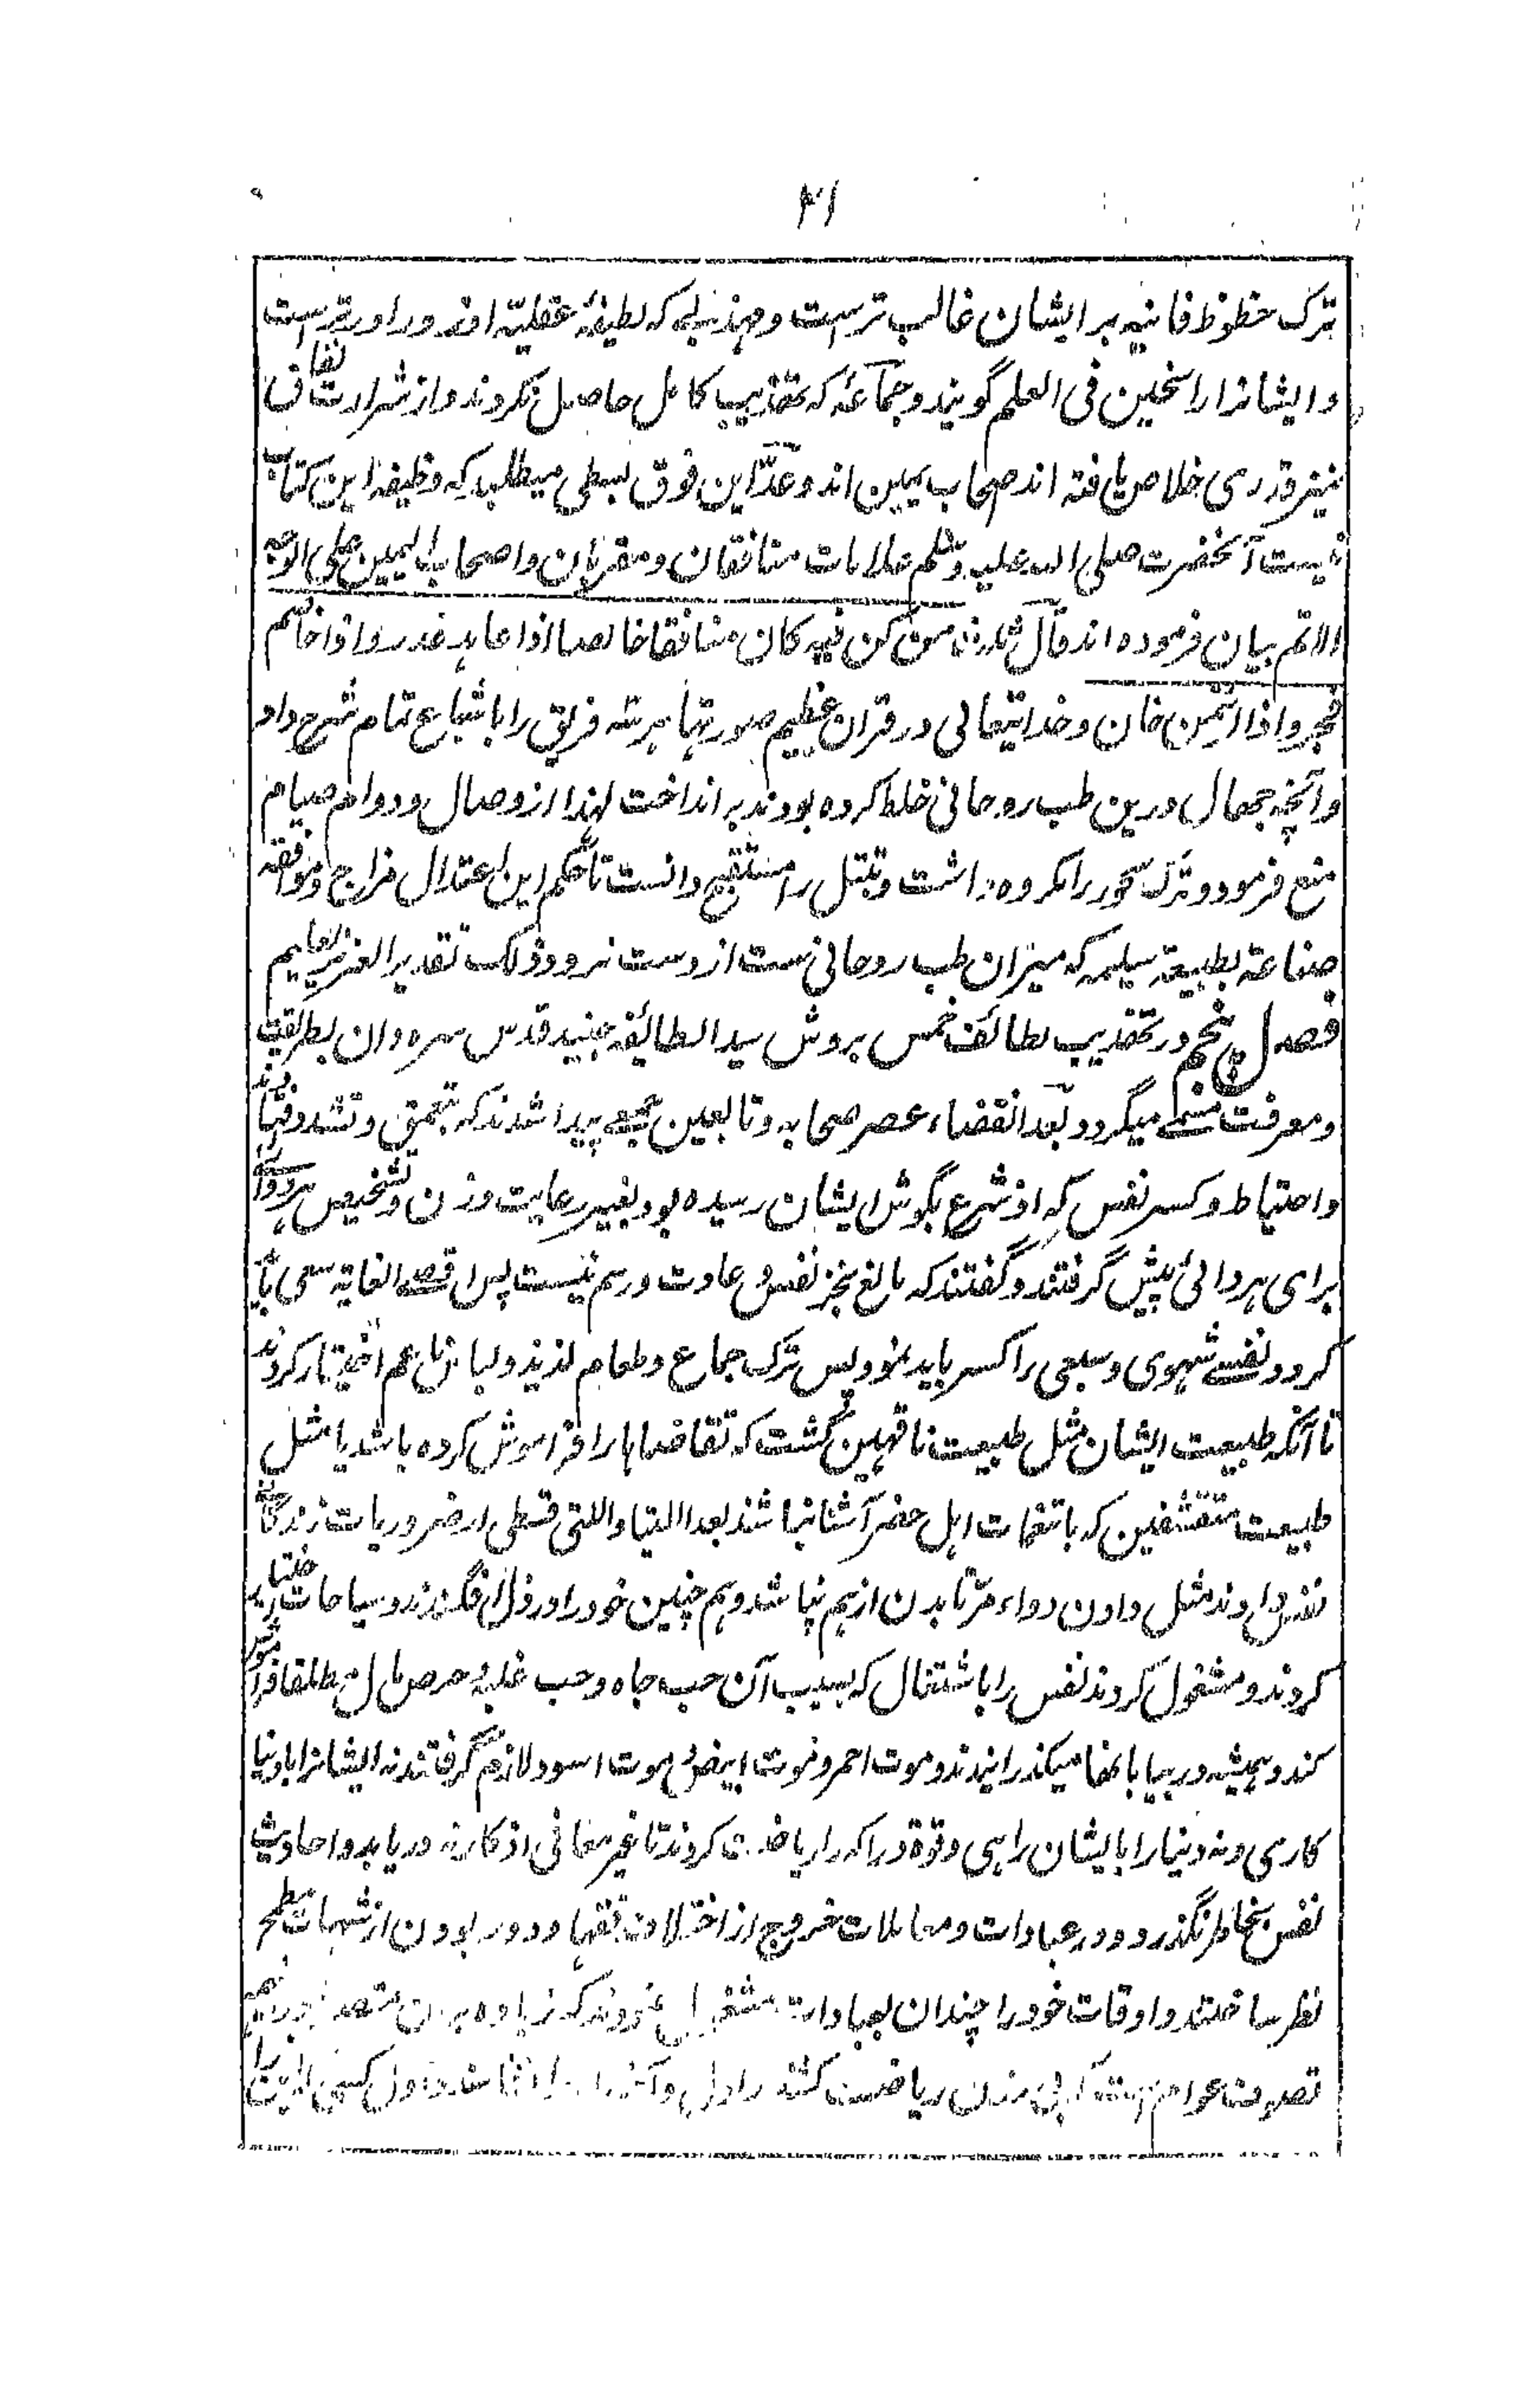 ۴۱
ترک حظوظ فانیه بر ایشان غالب ترست و مهذب که لطیفهٔ عقلیّه او زور اورترست
و ایشانرا راسخین فی العلم گویند و جماعهٔ که تهذیب کامل حاصل نکردند و از شرارت نفاق
نیز قدری خلاص یافته اند اصحاب یمین اند و عدّ این فوق بسطی میطلبد که وظیفه این کتاب
نیست آنحضرت صلی الله علیه وسلم علامات منافقان و مقربان و اصحاب الیمین علی الوجه
الاتم بیان فرموده اند قال ثلاث من کن فیه کان منافقا خالصا اذا عاهد غدر و اذا خاصم
فجر و اذا ائتمن خان و خدایتعالی در قران عظیم صورتها هر سه فریق را با شباع تمام شرح داد
و آنچه جهال درین طب روحانی خلط کرده بودند بر انداخت لهذا از وصال و دوام صیام
منع فرمود و ترک سحور را مکروه داشت و تبتل را مستقبح دانست تا حکم این اعتدال مزاج و موافقه
صناعة بطبیعة سلیمه که میزان طب روحانی ست از دست نرود و ذلک تقدیر العزیز العلیم
فصل پنجم در تهذیب لطائف خمس بروش سید الطائفه جنید قدس سره و ان بطریقت
و معرفت مسمی میگردد بعد انقضاء عصر صحابه و تابعین جمعی پیدا شدند که تعمق و تشدد
و احتیاط و کسر نفس که از شرع بگوش ایشان رسیده بود بغیر رعایت وزن و تشخیص هر دوا
برای هر دائی پیش گرفتند و گفتند که مانع بجز نفس و عادت و رسم نیست پس اقصی الغایة سعی باید
کرد و نفس شهوی و سبعی را کسر باید نمود پس ترک جماع و طعام لذیذ و لباس ناعم اختیار کردند
تا آنکه طبیعت ایشان مثل طبیعت ناقهین گشت که تقاضاها را فراموش کرده باشد یا مثل
طبیعت متقشفین که با تنعمات اهل حضر آشنا نباشند بعد اللتیا واللتی قسطی از ضروریات زندگانی
نفس دادند مثل دادن دواء مر تا بدن از هم نپاشد و هم چنین خود را در ذل افگندند و سیاحات اختیار
کردند و مشغول کردند نفس را باشتغال که بسبب آن حب جاه و حب غلبه و حرص مال مطلقا فراموش
کند و همیشه در بیابانها میگذرانیدند و موت احمر و موت ابیض و موت اسود لازم گرفتند نه ایشانرا با دنیا
کاری و نه دنیا را با ایشان راهی و قوة دراکه را ریاضت کردند تا غیر معانی اذکار نه دریابد و احادیث
نفس بخاطر نگذرد و در عبادات و معاملات خروج از اختلاف فقها و دور بودن از شبهات مطمح
نظر ساختند و اوقات خود را چندان بعبادات مشغول نمودند که زیاده بران متصور
تصرف عوام ریاضت کشند